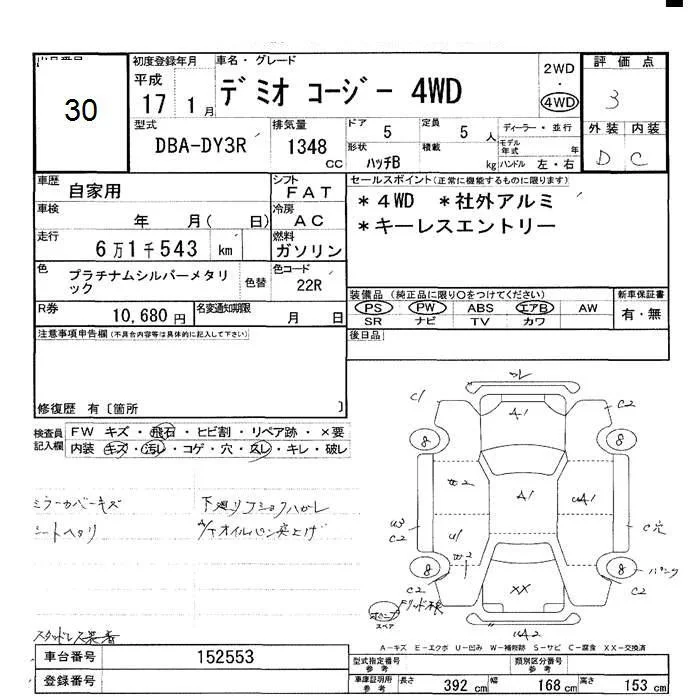 30
初度登録年月
平成
17 1月
車名・グレード
デミオ コージー 4WD
2WD
・
4WD
評価点
3
外装 内装
D C
型式
DBA-DY3R
排気量
1348
CC
ドア
5
定員
5 人
形状
ハッチB
積載
kg
ディーラー・並行
モデル年式 年
ハンドル 左・右
車歴
自家用
シフト
FAT
車検
年 月( 日)
冷房
AC
走行
6万1千543 km
燃料
ガソリン
色
プラチナムシルバーメタリック
色替
色コード
22R
R券
10,680円
名変通知期限
月 日
セールスポイント(正常に機能するものに限ります)
*4WD *社外アルミ
*キーレスエントリー
装備品(純正品に限り○をつけてください)
PS PW ABS エアB AW
SR ナビ TV カワ
新車保証書
有・無
後日品
注意事項申告欄(不具合内容等は具体的に記入して下さい)
修復歴 有〔箇所 〕
検査員記入欄
FW キズ・飛石・ヒビ割・リペア跡・×要
内装 キズ・汚レ・コゲ・穴・スレ・キレ・破レ
ミラーカバーキズ
シートヘタリ
下廻リコショウハガレ
オイルパン突上げ
スタッドレス装着
C1
A1
C2
8
8
W2
A1
UA1
W3
C2
U1
W2
C穴
8
8
パンク
C2
XX
C2
スペア
A-キズ E-エクボ U-凹み W-補修跡 S-サビ C-腐食 XX-交換済
車台番号
152553
登録番号
型式指定番号
参考
類別区分番号
参考
車庫証明用
参考
長さ 392 cm
幅 168 cm
高さ 153 cm